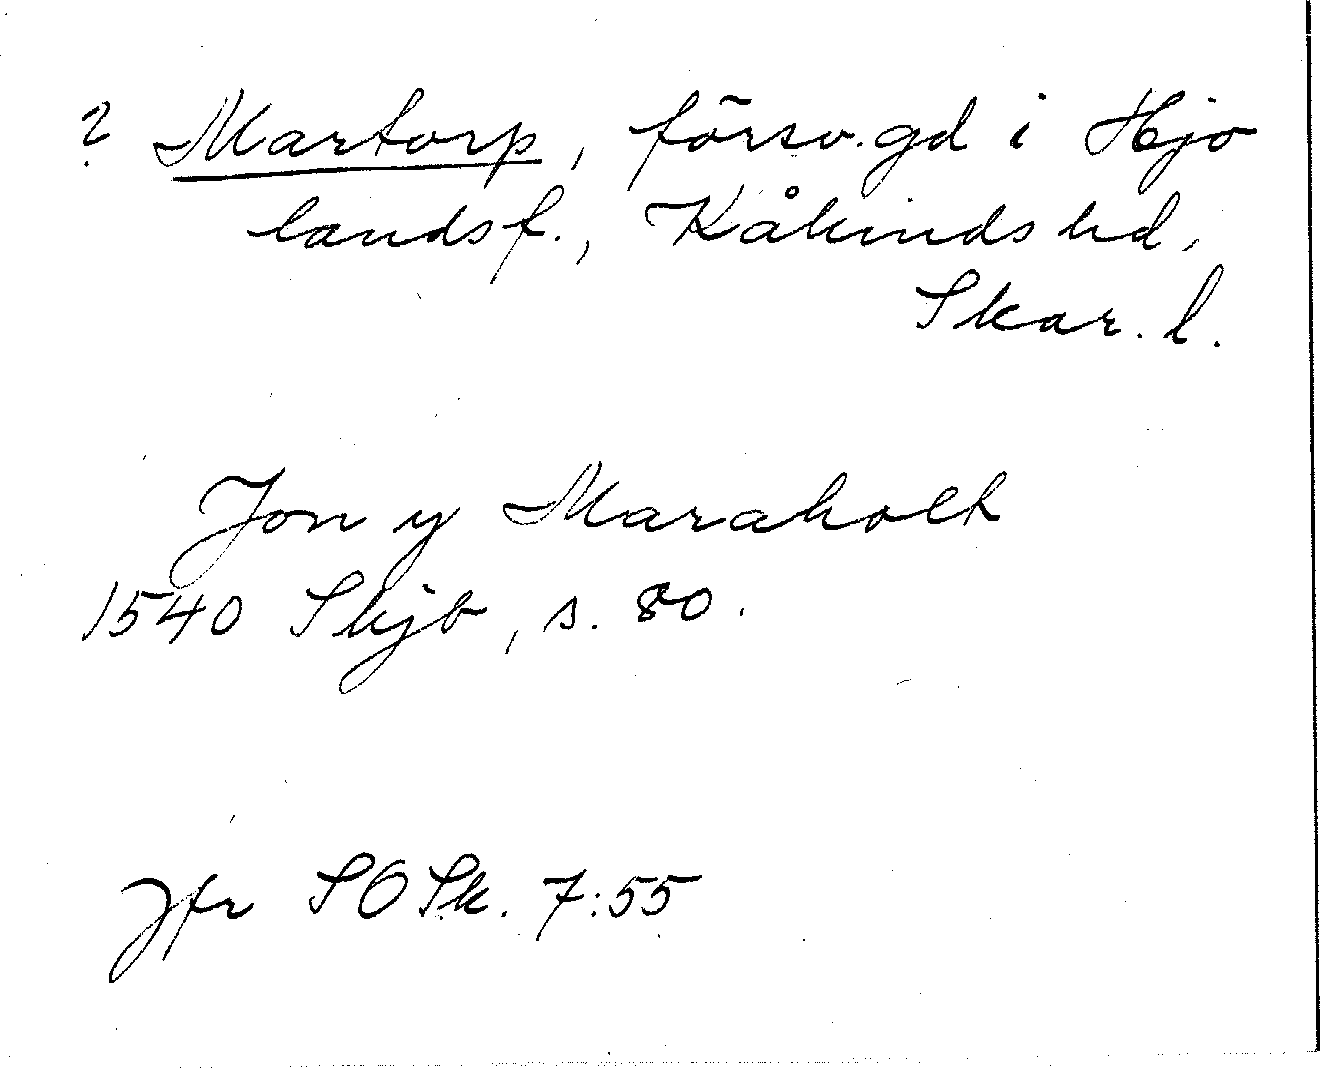 ? Martorp, försv. gd i Hjo
landsf., Kåkinds hd,
Skar. l.
Jon y Maraholt
1540 Skjb, s. 80.
Jfr SOSk. 7:55